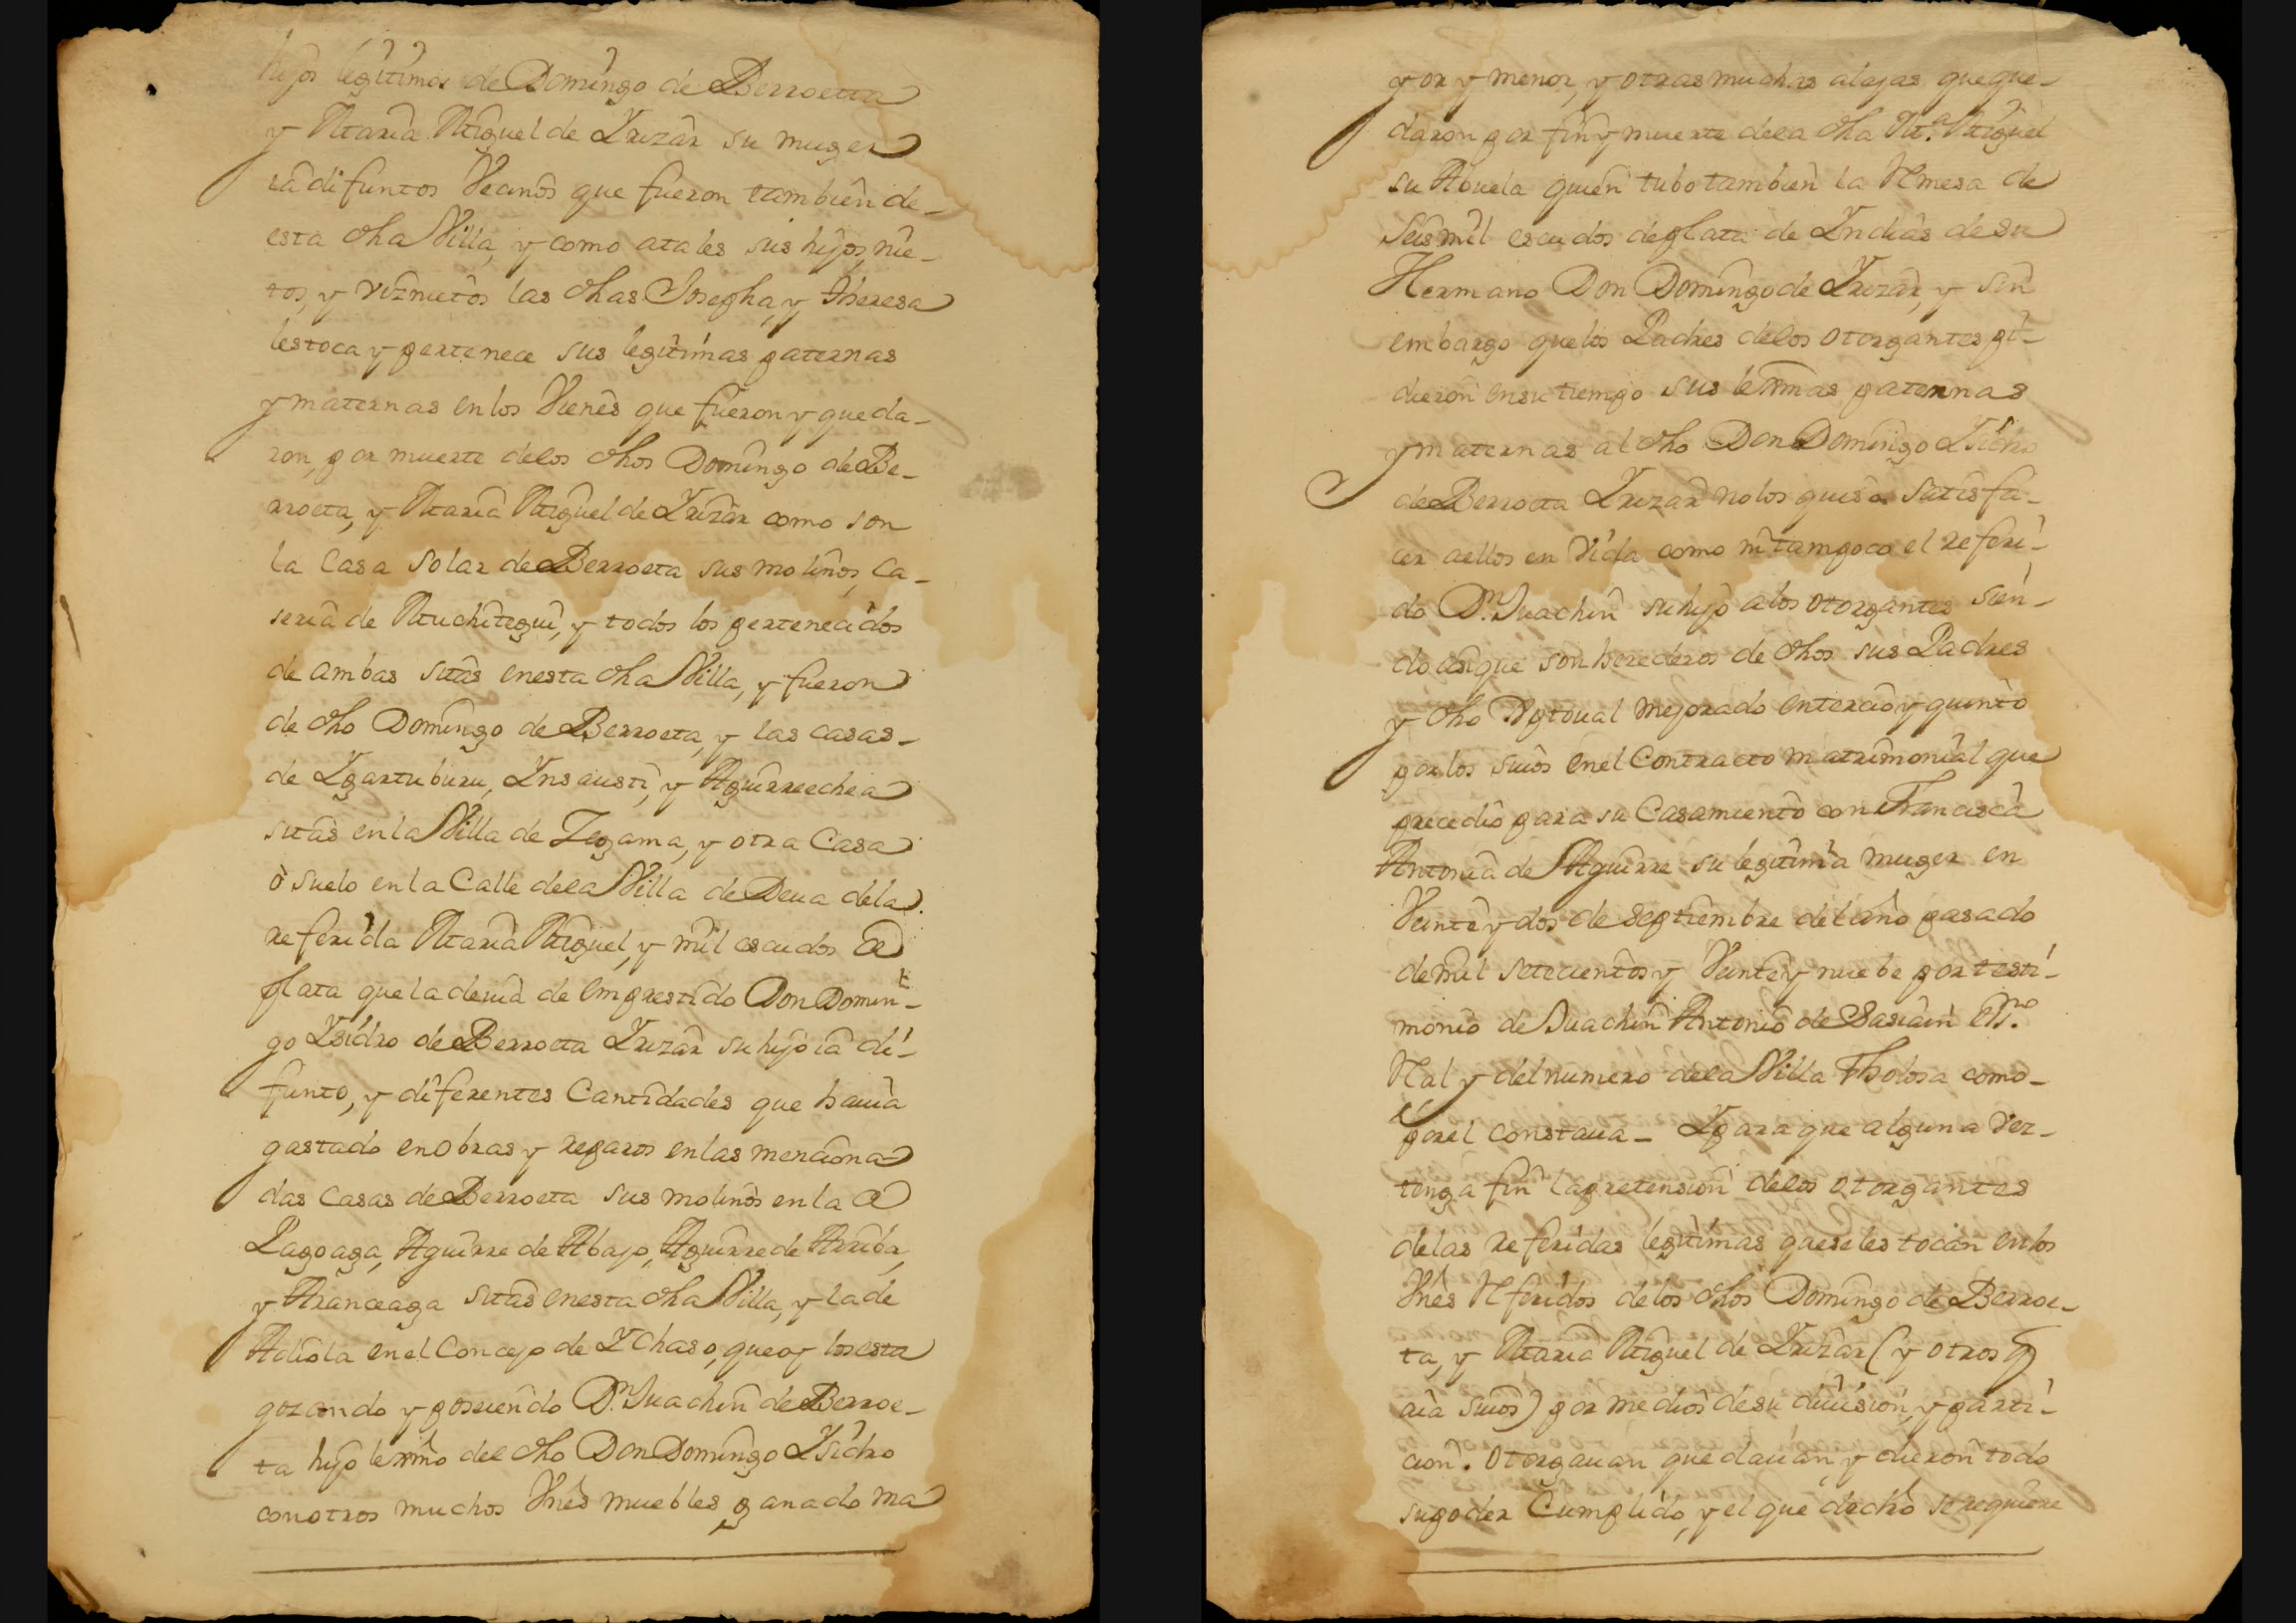 hijos legitimos de Domingo de Berroetta
y Maria Miguel de Yrizar su muger
ia difuntos Vecinos que fueron tambien de-
esta dha Villa, y como atales sus hijos, nie-
tos, y viznietos las dhas Josepha, y theresa
lestoca y pertenece sus legitimas paternas
y maternas en los Vienes que fueron y queda-
ron, por muerte delos dhos Domingo de Be-
rroeta, y Maria Miguel de Yrizar como son
la Casa Solar de Berroeta sus molinos, Ca-
seria de Muchitegui, y todos los pertenecidos
de ambas sitas enesta dha Villa, y fueron
de dho Domingo de Berroeta, y las casas-
de Ygartuburu, Ynsausti, y Aguirreechea
sitas en la Villa de Zegama, y otra Casa
ò suelo en la Calle dela Villa de Deua dela
referida Maria Miguel, y mil escudos de
plata que la deuia de emprestido Don Domin-
go Ysidro de Berroeta Yrizar su hijo ia di-
funto, y diferentes Cantidades que hauia
gastado en obras y reparos en las menciona-
das Casas de Berroeta sus molinos en la de
Lagoaga, Aguirre de Abajo, Aguirre de Arriba,
y Aranceaga sitas enesta dha Villa, y la de
Adiola en el Concejo de Ychaso, que oy los esta
gozando y poseiendo Dn. Juachin de Berroe-
ta hijo lexmo del dho Don Domingo Ysidro
con otros muchos Vnes muebles, ganado ma
yor y menor, y otras muchas alajas que que-
daron por fin y muerte dela dha Ma. Miguel
su Abuela quien tubo tambien la Rmesa de
Seis mil escudos de plata de Yndias de su
Hermano Don Domingo de Yrizar, y sin
embargo que los Padres delos otorgantes pi-
dieron en su tiempo sus lexmas paternas
y maternas al dho Don Domingo Ysidro
de Berroeta Yrizar no los quiso satisfa-
cer aellos en vida como ni tampoco el referi-
do Dn. Juachin su hijo a los otorgantes sien-
do asique son herederos de dhos sus Padres
y dho Xptoual mejorado entercio y quinto
por los suios enel Contracto matrimonial que
precedio para su Casamiento con Francisca
Antonia de Aguirre su legitima muger en
Veinte y dos de Septiembre del año pasado
de mil setecientos y Veinte y nuebe por testi-
monio de Juachin Antonio de Sasiain Essno.
Rl y del numero dela Villa Tholosa como-
por el constaua- Y para que alguna vez-
tenga fin la pretension delos otorgantes
delas referidas legitimas que se les tocan en los
Vnes Rferidos de los dhos Domingo de Berroe-
ta, y Maria Miguel de Yrizar (y otros q
aia suios) por medios de su diuision, y parti-
cion. Otorgauan que dauan, y dieron todo
su poder Cumplido, y el que de dcho se requiere